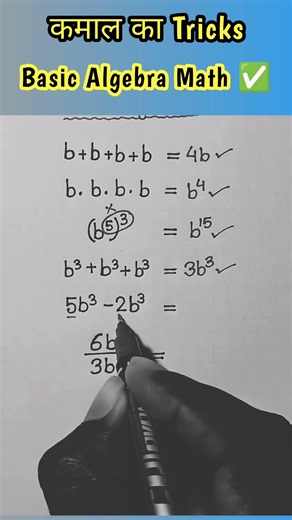 कमाल का Tricks
Basic Algebra Math ✅
b+b+b+b = 4b ✓
b. b. b. b = b⁴ ✓
×
(b⁵)³ = b¹⁵
b³+b³+b³ = 3b³ ✓
5b³ - 2b³ =
6b
3b =